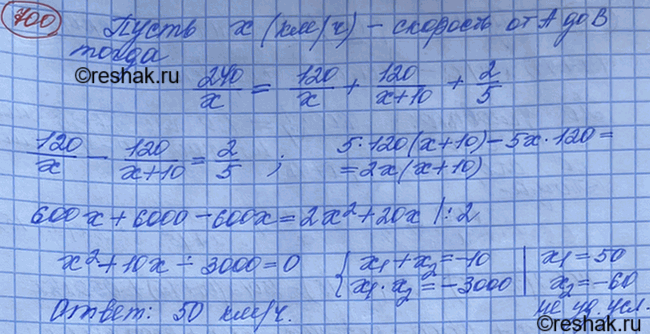 700 Пусть x (км/ч) – скорость от A до B
©reshak.ru
тогда
240/x = 120/x + 120/(x+10) + 2/5
120/x − 120/(x+10) = 2/5 ; 5·120(x+10) − 5x·120 =
= 2x(x+10)
600x + 6000 − 600x = 2x² + 20x |:2
x² + 10x − 3000 = 0 { x₁ + x₂ = −10 | x₁ = 50
x₁ · x₂ = −3000 | x₂ = −60
не уд. усл.
Ответ: 50 км/ч.
©reshak.ru